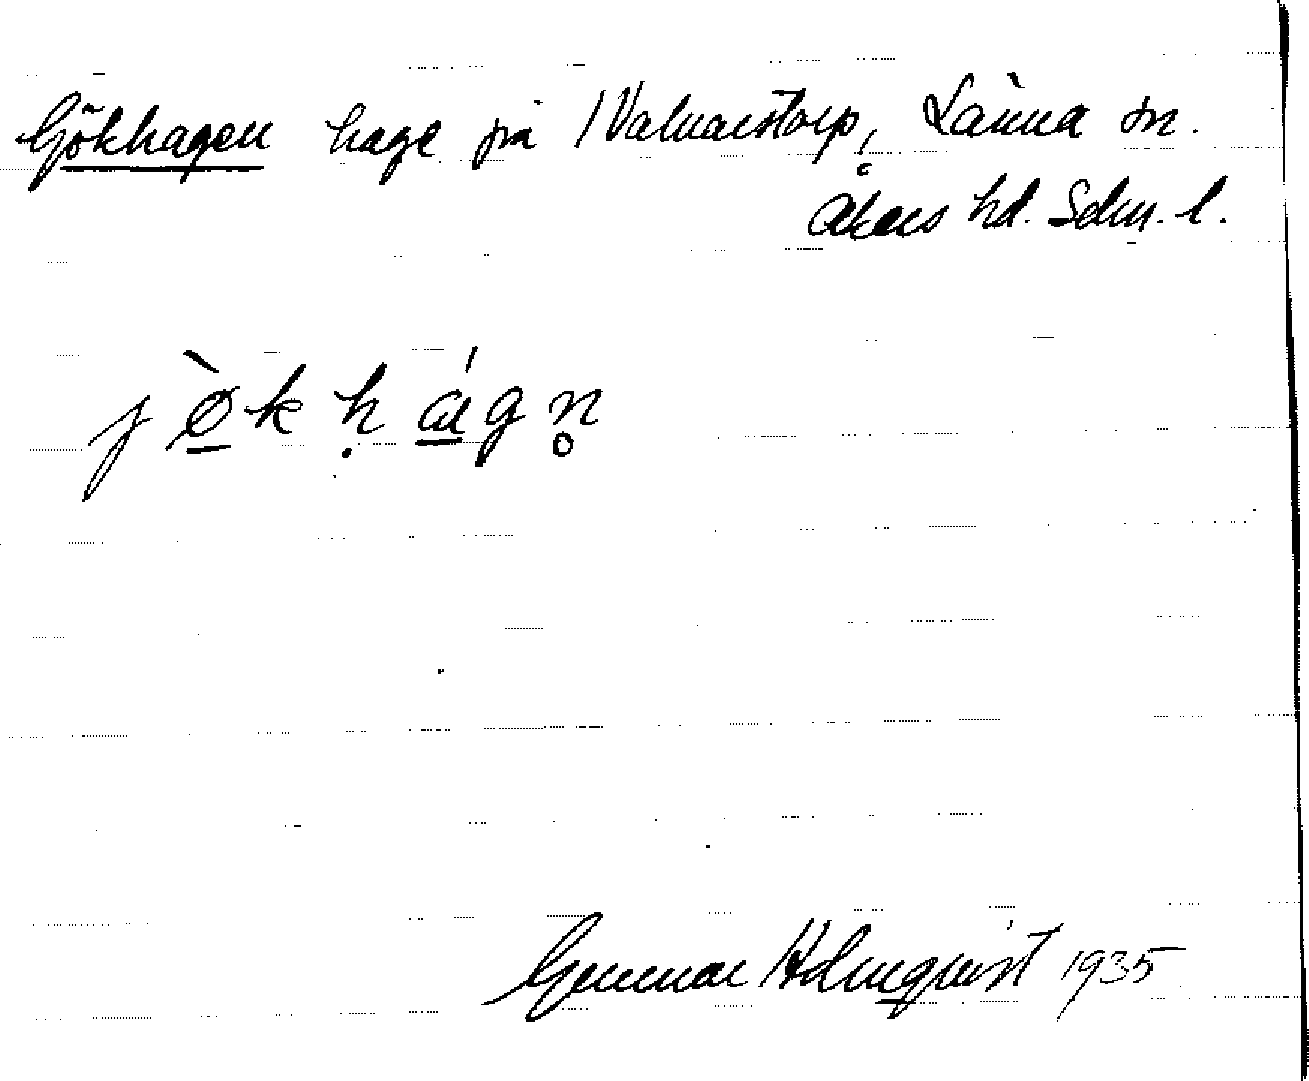 Gökhagen hage på Valnarstorp, Länna sn.
Åkers hd. Sdm. l.
jø̀k ḥágn̥
Gunnar Holmqvist 1935